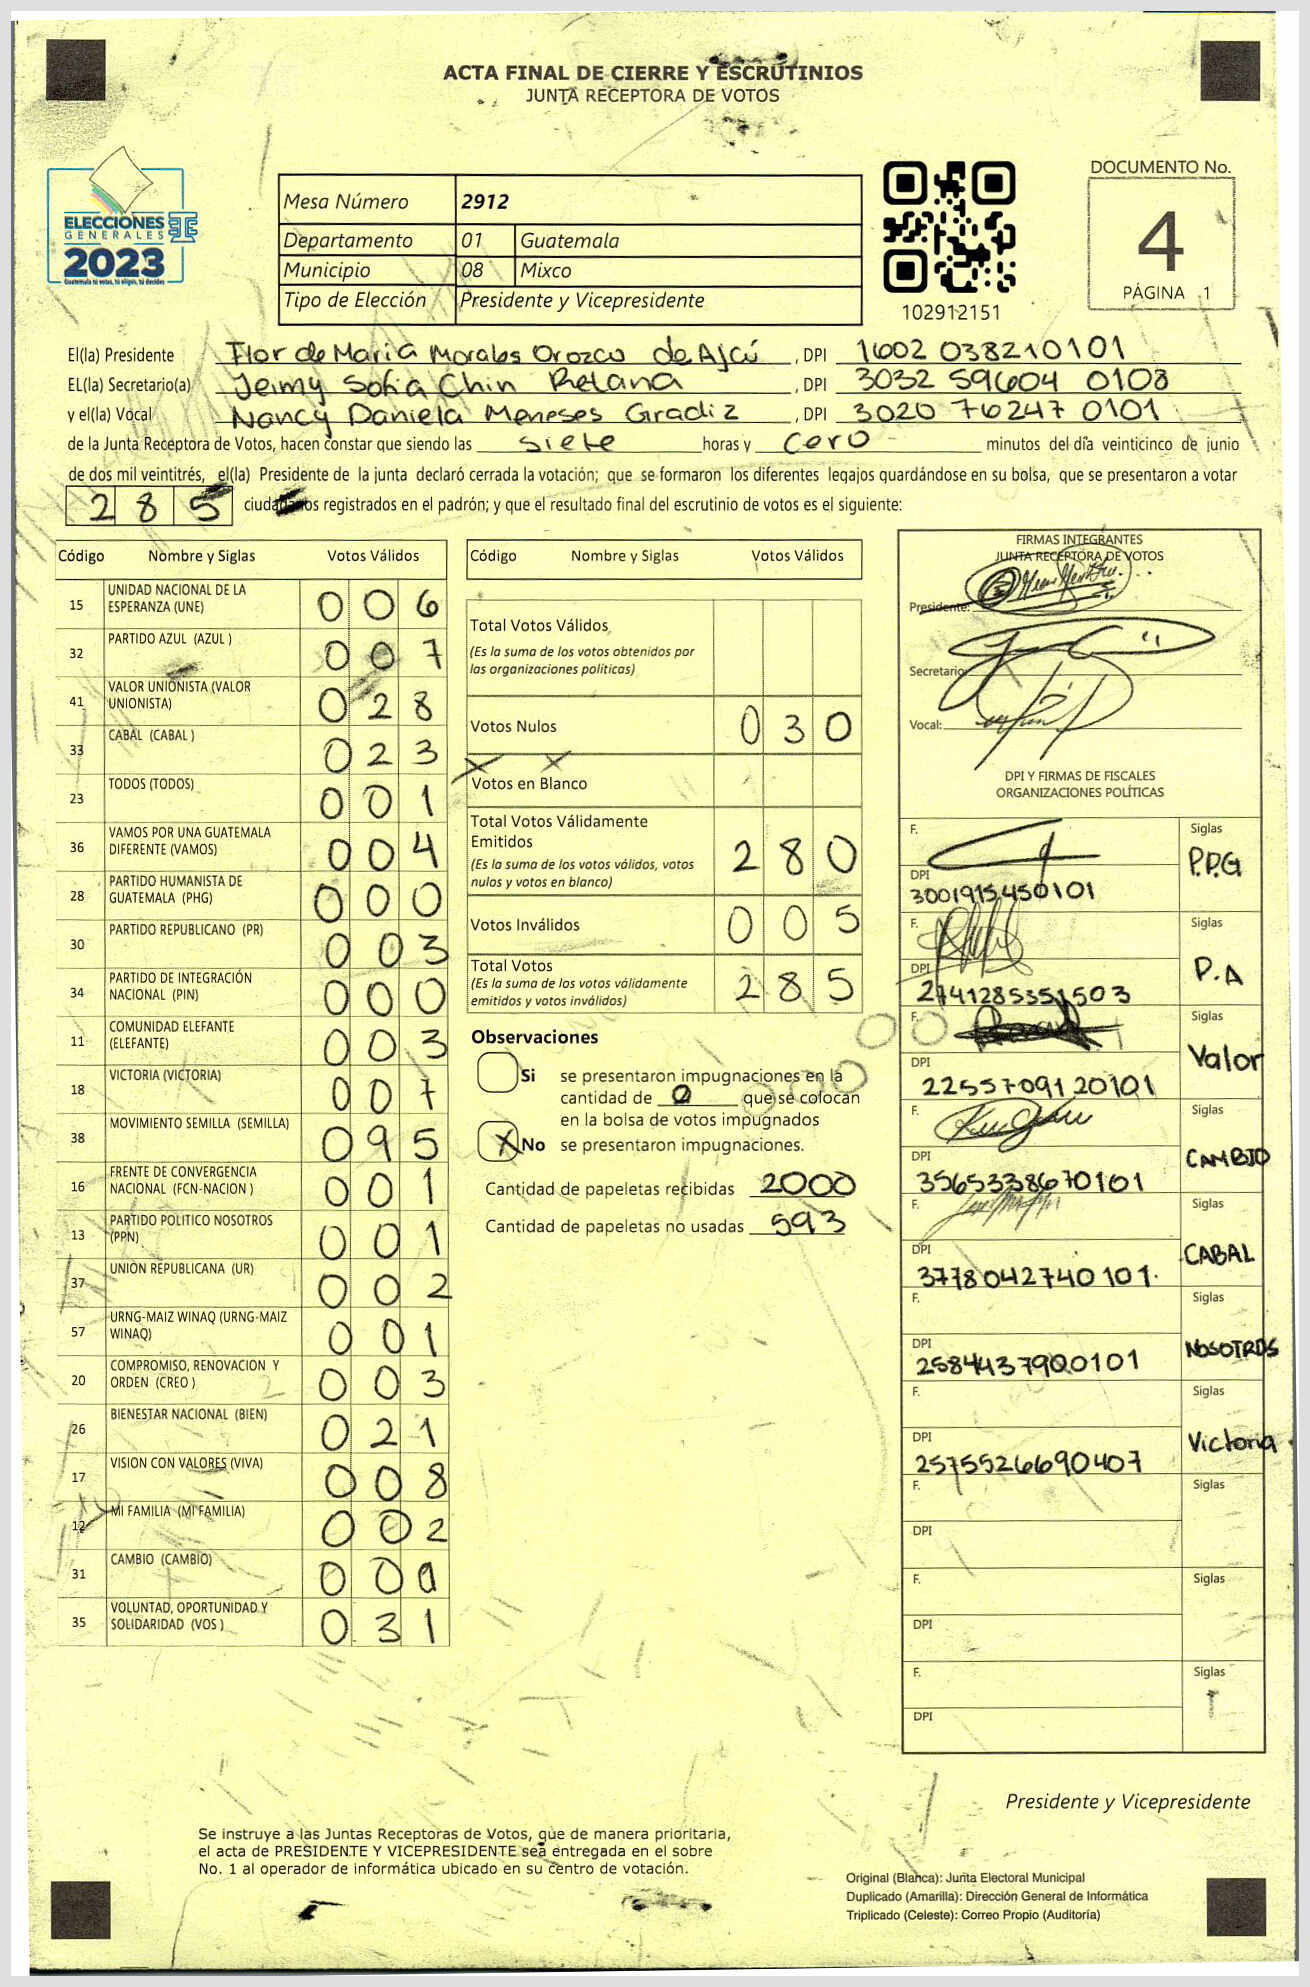 ACTA FINAL DE CIERRE Y ESCRUTINIOS
JUNTA RECEPTORA DE VOTOS
ELECCIONES
GENERALES
2023
Guatemala tú votas, tú eliges, tú decides
Mesa Número 2912
Departamento 01 Guatemala
Municipio 08 Mixco
Tipo de Elección Presidente y Vicepresidente
102912151
DOCUMENTO No.
4
PÁGINA 1
El(la) Presidente Flor de María Morales Orozco de Ajcú, DPI 1602 03821 0101
EL(la) Secretario(a) Jeimy Sofia Chin Retana, DPI 3032 59604 0108
y el(la) Vocal Nancy Daniela Meneses Gradiz, DPI 3020 76247 0101
de la Junta Receptora de Votos, hacen constar que siendo las siete horas y cero minutos del día veinticinco de junio
de dos mil veintitrés, el(la) Presidente de la junta declaró cerrada la votación; que se formaron los diferentes legajos quardándose en su bolsa, que se presentaron a votar
285 ciudadanos registrados en el padrón; y que el resultado final del escrutinio de votos es el siguiente:
Código Nombre y Siglas Votos Válidos
15 UNIDAD NACIONAL DE LA ESPERANZA (UNE) 006
32 PARTIDO AZUL (AZUL ) 007
41 VALOR UNIONISTA (VALOR UNIONISTA) 028
33 CABAL (CABAL ) 023
23 TODOS (TODOS) 001
36 VAMOS POR UNA GUATEMALA DIFERENTE (VAMOS) 004
28 PARTIDO HUMANISTA DE GUATEMALA (PHG) 000
30 PARTIDO REPUBLICANO (PR) 003
34 PARTIDO DE INTEGRACIÓN NACIONAL (PIN) 000
11 COMUNIDAD ELEFANTE (ELEFANTE) 003
18 VICTORIA (VICTORIA) 007
38 MOVIMIENTO SEMILLA (SEMILLA) 095
16 FRENTE DE CONVERGENCIA NACIONAL (FCN-NACION ) 001
13 PARTIDO POLITICO NOSOTROS (PPN) 001
37 UNION REPUBLICANA (UR) 002
57 URNG-MAIZ WINAQ (URNG-MAIZ WINAQ) 001
20 COMPROMISO, RENOVACION Y ORDEN (CREO ) 003
26 BIENESTAR NACIONAL (BIEN) 021
17 VISION CON VALORES (VIVA) 008
12 MI FAMILIA (MI FAMILIA) 002
31 CAMBIO (CAMBIO) 00
35 VOLUNTAD, OPORTUNIDAD Y SOLIDARIDAD (VOS ) 031
Código Nombre y Siglas Votos Válidos
Total Votos Válidos
(Es la suma de los votos obtenidos por
las organizaciones políticas)
Votos Nulos 030
Votos en Blanco
Total Votos Válidamente
Emitidos 280
(Es la suma de los votos válidos, votos
nulos y votos en blanco)
Votos Inválidos 005
Total Votos 285
(Es la suma de los votos válidamente
emitidos y votos inválidos)
Observaciones
Si se presentaron impugnaciones en la
cantidad de 0 que se colocan
en la bolsa de votos impugnados
X No se presentaron impugnaciones.
Cantidad de papeletas recibidas 2000
Cantidad de papeletas no usadas 593
FIRMAS INTEGRANTES
JUNTA RECEPTORA DE VOTOS
Presidente:
Secretario:
Vocal:
DPI Y FIRMAS DE FISCALES
ORGANIZACIONES POLÍTICAS
F. Siglas P.P.G
DPI 3001915450101
F. Siglas P.A
DPI 2741285351503
F. Siglas Valor
DPI 2255709120101
F. Siglas CAMBIO
DPI 3565338670101
F. Siglas CABAL
DPI 3778042740101
F. Siglas NOSOTROS
DPI 2584437900101
F. Siglas Victoria
DPI 2575526690407
F. Siglas
DPI
F. Siglas
DPI
F. Siglas
DPI
Presidente y Vicepresidente
Se instruye a las Juntas Receptoras de Votos, que de manera prioritaria,
el acta de PRESIDENTE Y VICEPRESIDENTE sea entregada en el sobre
No. 1 al operador de informática ubicado en su centro de votación.
Original (Blanca): Junta Electoral Municipal
Duplicado (Amarilla): Dirección General de Informática
Triplicado (Celeste): Correo Propio (Auditoría)